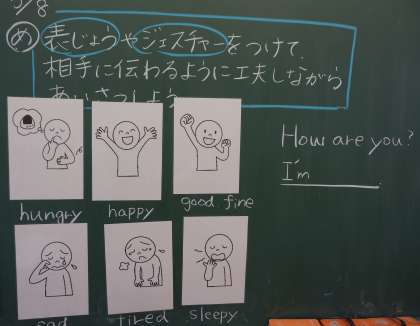 5/8
め 表じょうやジェスチャーをつけて、
相手に伝わるように工夫しながら
あいさつしよう
How are you?
I'm
hungry happy good fine
sad tired sleepy